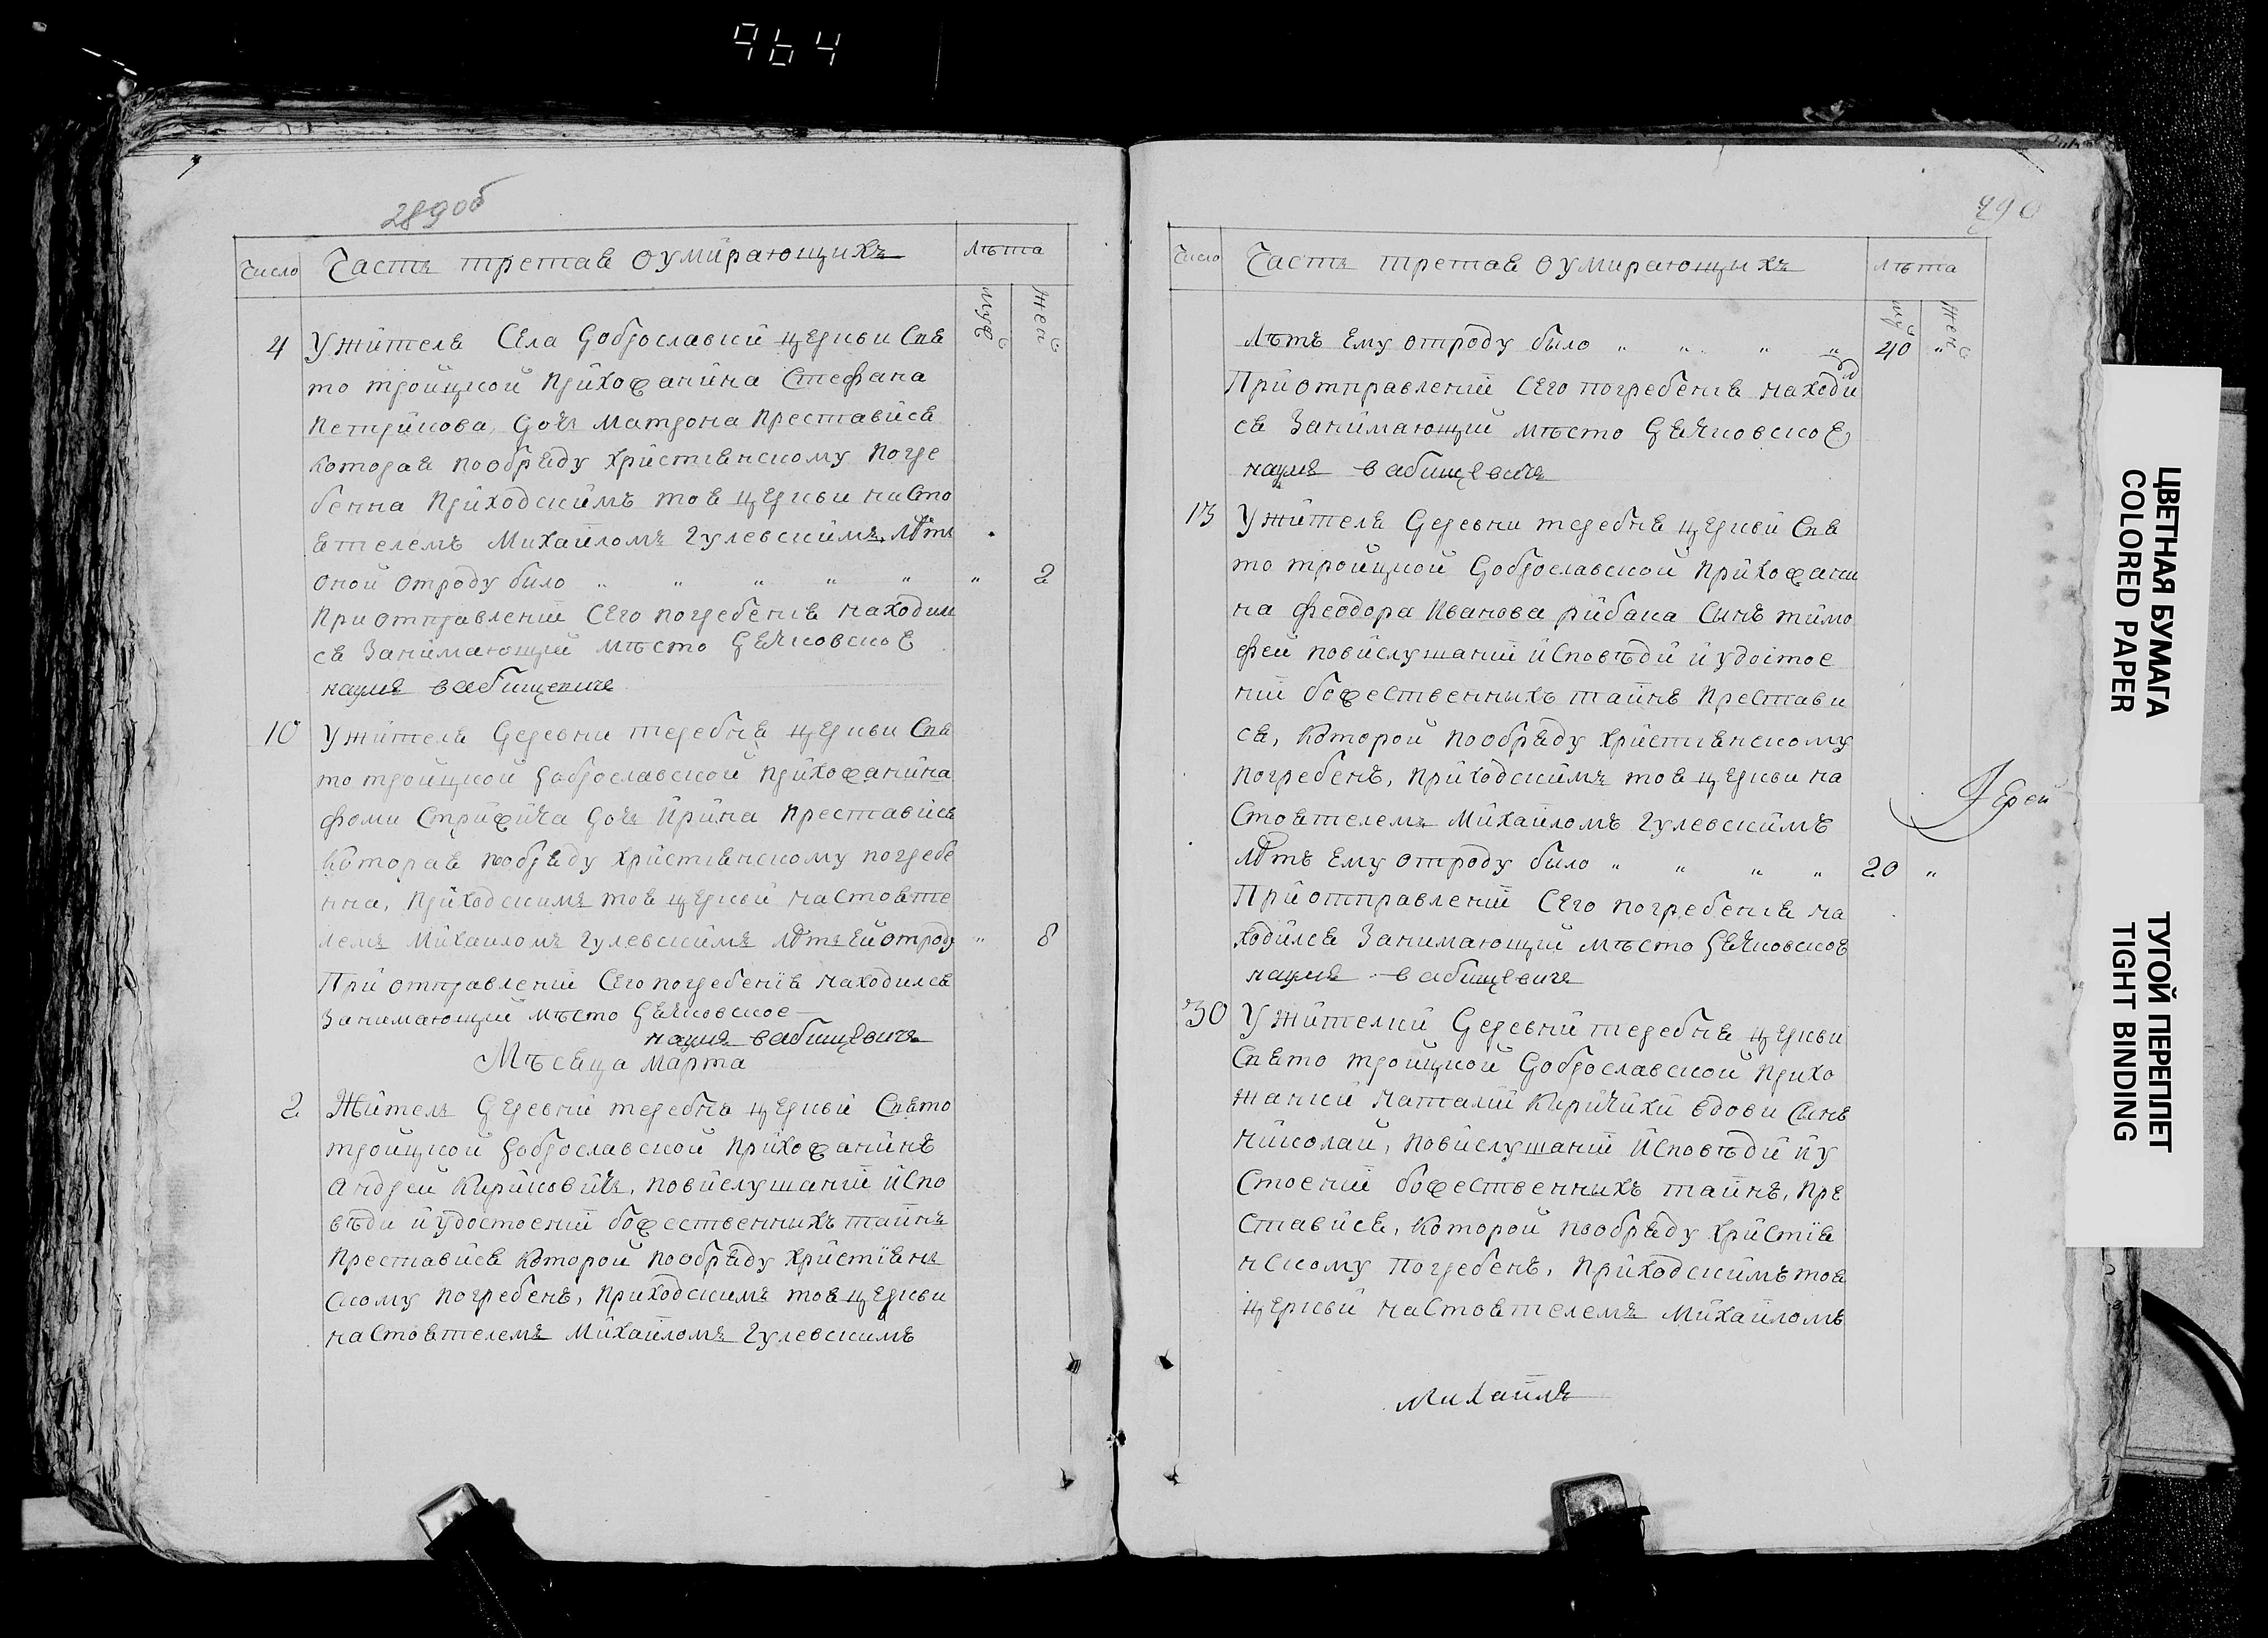 964
289об
Число Часть третая оумирающихъ Лѣта
муж жен
4 У жителя Села Доброславки церкви Свя
то троицкой прихожанина Стефана
Петрикова, Дочь Матрона преставися
которая пообряду христіянскому погре
бенна приходскимъ тоя церкви насто
ятелемъ Михаиломъ Гулевскимъ, Лѣтъ
оной отроду было " " " " " " 2
При отправленіи Сего погребенія находил
ся Занимающій мѣсто Дячковское
наумъ вабищевичъ
10 У жителя Деревни теребня церкви Свя
то троицкой Доброславской прихожанина
фоми Стрижича Дочь Ирина преставися
которая пообряду христіянскому погребе
нна, приходскимъ тоя церкви настояте
лемъ Михаиломъ Гулевскимъ Лѣтъ Ей отроду " 8
При отправленіи Сего погребенія находился
Занимающій мѣсто Дячковское
наумъ вабищевичъ
Мѣсяца марта
2 Житель Деревни теребня церкви Свято
троицкой Доброславской прихожанинъ
Андреи Кириковичъ, повислушаніи испо
вѣди и удостоеніи божественнихъ тайнъ
преставися которой пообряду христіян
скому погребенъ, приходскимъ тоя церкви
настоятелемъ Михаиломъ Гулевскимъ
290
Число Часть третая оумирающихъ Лѣта
муж жен
Лѣтъ Ему отроду было " " " " 40 "
При отправленіи Сего погребенія находил
ся Занимающій мѣсто Дячковское,
наумъ вабищевичъ
13 У жителя Деревни теребня церкви Свя
то троицкой Доброславской прихожани
на феодора Иванова рибака Синъ тимо
фей повислушаніи исповѣди и удостое
ніи божественныхъ тайнъ престави
ся, которой пообряду христіянскому
погребенъ, приходскимъ тоя церкви на
стоятелемъ Михаиломъ Гулевскимъ
Лѣтъ Ему отроду было " " " " 20 "
При отправленіи Сего погребенія на
ходился Занимающій мѣсто Дячковское
наумъ вабищевичъ
Іерей
30 У жителки Деревни теребня церкви
Свято троицкой Доброславской прихо
жанки наталіи Киричихи вдови Синъ
николай, повислушаніи исповѣди и у
стоеніи божественныхъ тайнъ, пре
ставися, которой пообряду христія
нскому погребенъ, приходскимъ тоя
церкви настоятелемъ Михаиломъ
Михаилъ
ЦВЕТНАЯ БУМАГА
COLORED PAPER
ТУГОЙ ПЕРЕПЛЕТ
TIGHT BINDING